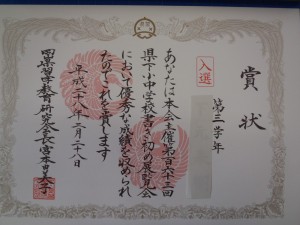 賞状
入選
第三学年
あなたは本会主催第百六十三回
県下小中学校書き初め展覧会
において優秀な成績を収められ
たのでこれを賞します
平成二十八年二月二十八日
習字教育研究会長宮本